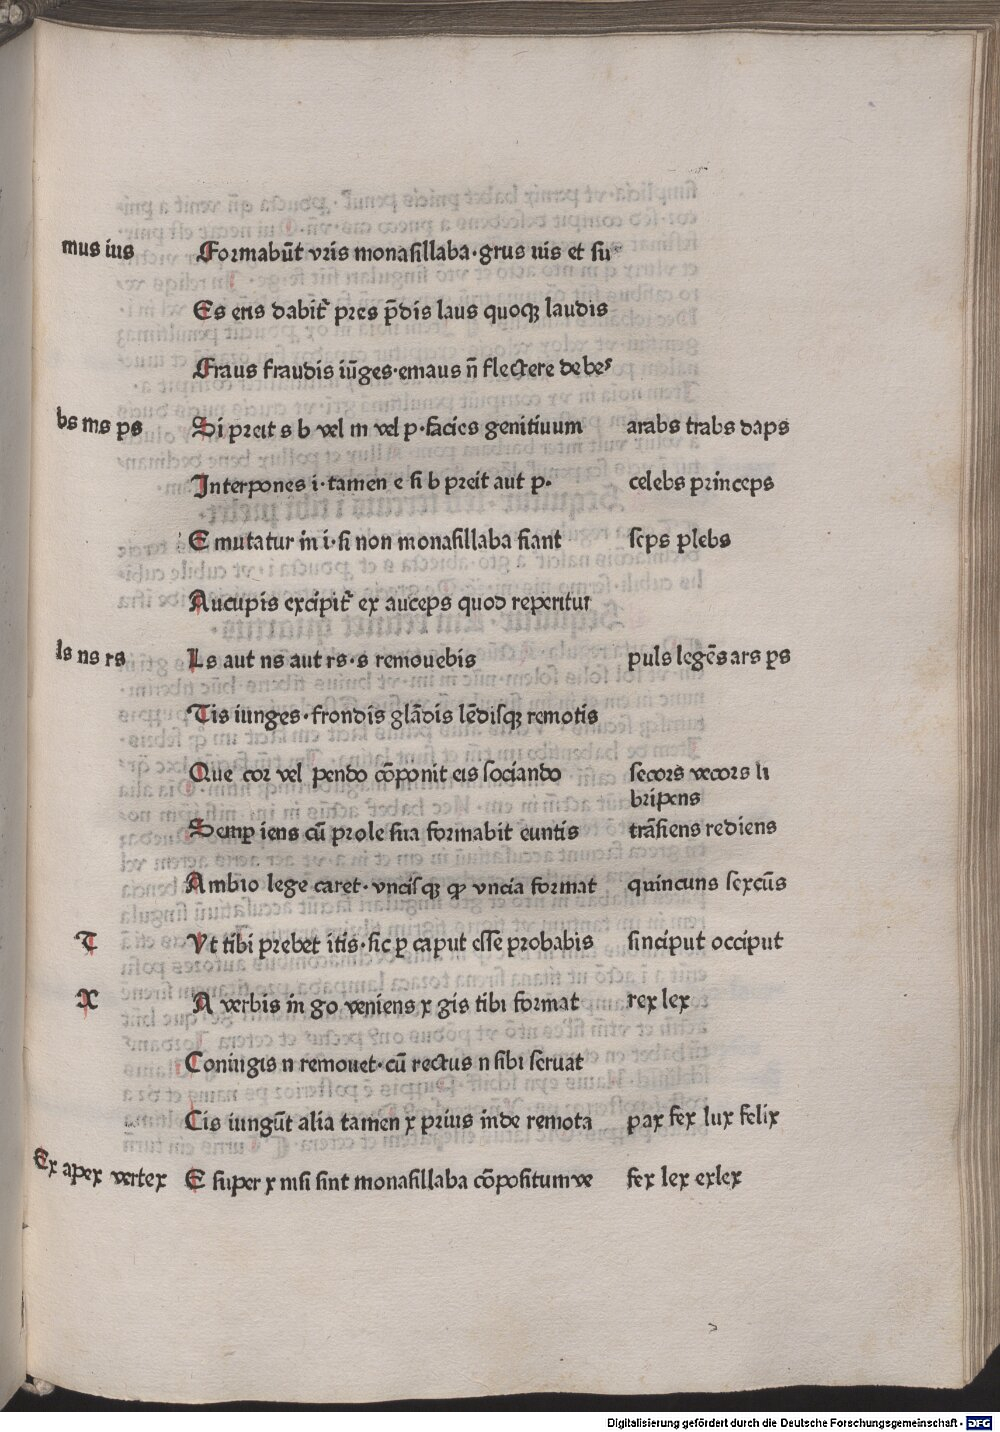 mus ius Formabūt vris monasillaba·grus uis et su
Es ens dabit̃ pres p̃dis laus quoqꝫ laudis
Fraus fraudis iūges·emaus ñ flectere debeˢ
bs ms ps Si preit s b vel m vel p·facies genitiuum arabs trabs daps
Interpones i·tamen e si b preit aut p· celebs princeps
E mutatur in i·si non monasillaba fiant seps plebs
Aucupis excipit̃ ex auceps quod reperitur
ls ns rs Ls aut ns aut rs·s remouebis puls legēs ars ꝑs
Tis iunges·frondis glādis lēdisqꝫ remotis
Que cor vel pendo cōponit eis sociando secors vecors li
bripens
Semꝑ iens cū prole sua formabit euntis trāsiens rediens
Ambio lege caret·vncisqꝫ ꝙ vncia format quincuns sexcūs
T Vt tibi prebet itis·sic ꝑ caput esse probabis sinciput occiput
X A verbis in go veniens x gis tibi format rex lex
Coniugis n remouet·cū rectus n sibi seruat
Cis iungūt alia tamen x prius inde remota pax fex lux felix
Ex apex vertex E super x nisi sint monasillaba cōpositumve fex lex exlex
Digitalisierung gefördert durch die Deutsche Forschungsgemeinschaft · DFG